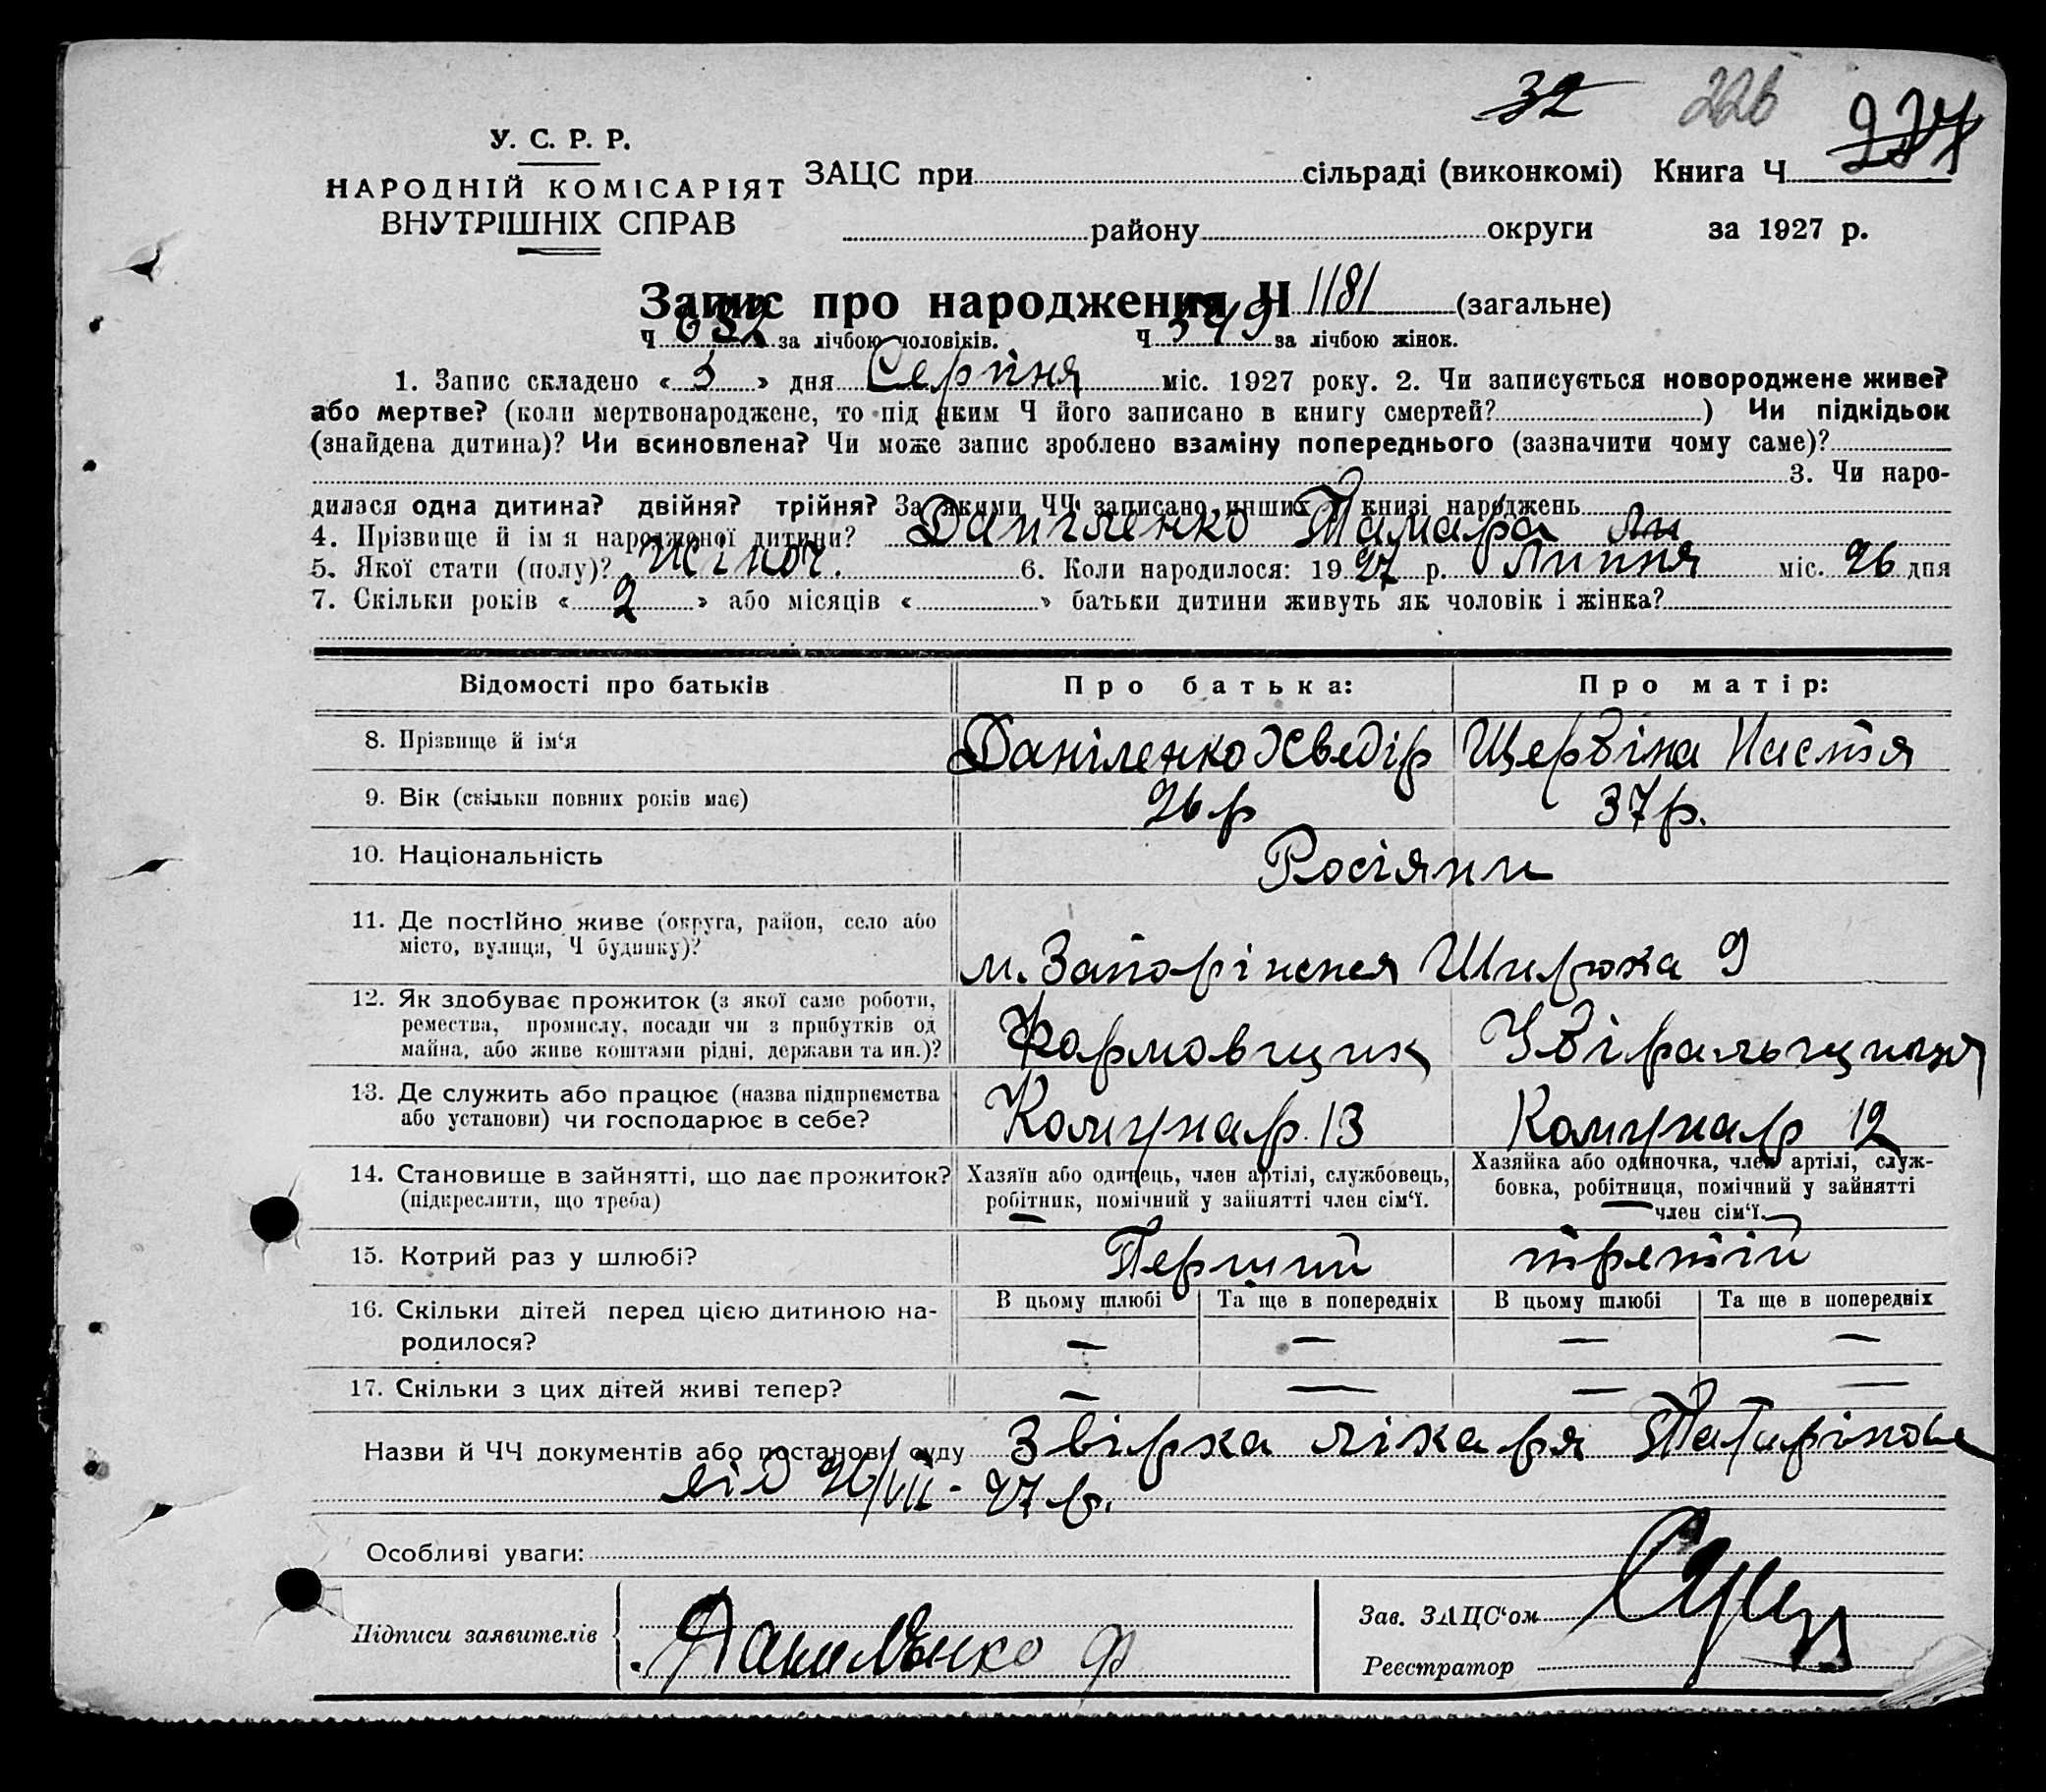 32 226 227
У. С. Р. Р.
НАРОДНІЙ КОМІСАРІЯТ
ВНУТРІШНІХ СПРАВ
ЗАЦС при сільраді (виконкомі) Книга Ч
району округи за 1927 р.
Запис про народження Ч 1181 (загальне)
Ч 632 за лічбою чоловіків. Ч 549 за лічбою жінок.
1. Запис складено « 3 » дня Серпня міс. 1927 року. 2. Чи записується новороджене живе?
або мертве? (коли мертвонароджене, то під яким Ч його записано в книгу смертей? ) Чи підкідьок
(знайдена дитина)? Чи всиновлена? Чи може запис зроблено взаміну попереднього (зазначити чому саме)?
3. Чи наро-
дилася одна дитина? двійня? трійня? За якими ЧЧ записано инших у книзі народжень
4. Прізвище й імя народженої дитини? Даніленко Тамара
5. Якої стати (полу)? Жіноч. 6. Коли народилося: 1927 р. Липня міс. 26 дня
7. Скільки років « 2 » або місяців « » батьки дитини живуть як чоловік і жінка?
Відомості про батьків Про батька: Про матір:
8. Прізвище й ім‘я Даніленко Хведір Щербіна Настя
9. Вік (скільки повних років має) 26 р 37 р.
10. Національність Росіяни
11. Де постійно живе (округа, район, село або
місто, вулиця, Ч будинку)? м. Запоріжжя 9
12. Як здобуває прожиток (з якої саме роботи,
ремества, промислу, посади чи з прибутків од
майна, або живе коштами рідні, держави та ин.)? Формовщик Убіральщиця
13. Де служить або працює (назва підприємства
або установи) чи господарює в себе? Комунар. 13 Комунар 12
14. Становище в зайнятті, що дає прожиток?
(підкреслити, що треба)
Хазяїн або одинець, член артілі, службовець,
робітник, помічний у зайнятті член сім‘ї.
Хазяйка або одиночка, член артілі, служ-
бовка, робітниця, помічний у зайнятті
член сім‘ї.
15. Котрий раз у шлюбі? Перший третій
16. Скільки дітей перед цією дитиною на-
родилося?
В цьому шлюбі Та ще в попередніх В цьому шлюбі Та ще в попередніх
— — — —
17. Скільки з цих дітей живі тепер? — — — —
Назви й ЧЧ документів або постанови суду Звірка лікаря
від 26/VII - 27 р.
Особливі уваги:
Підписи заявителів Даниленко Ф
Зав. ЗАЦС‘ом
Реєстратор